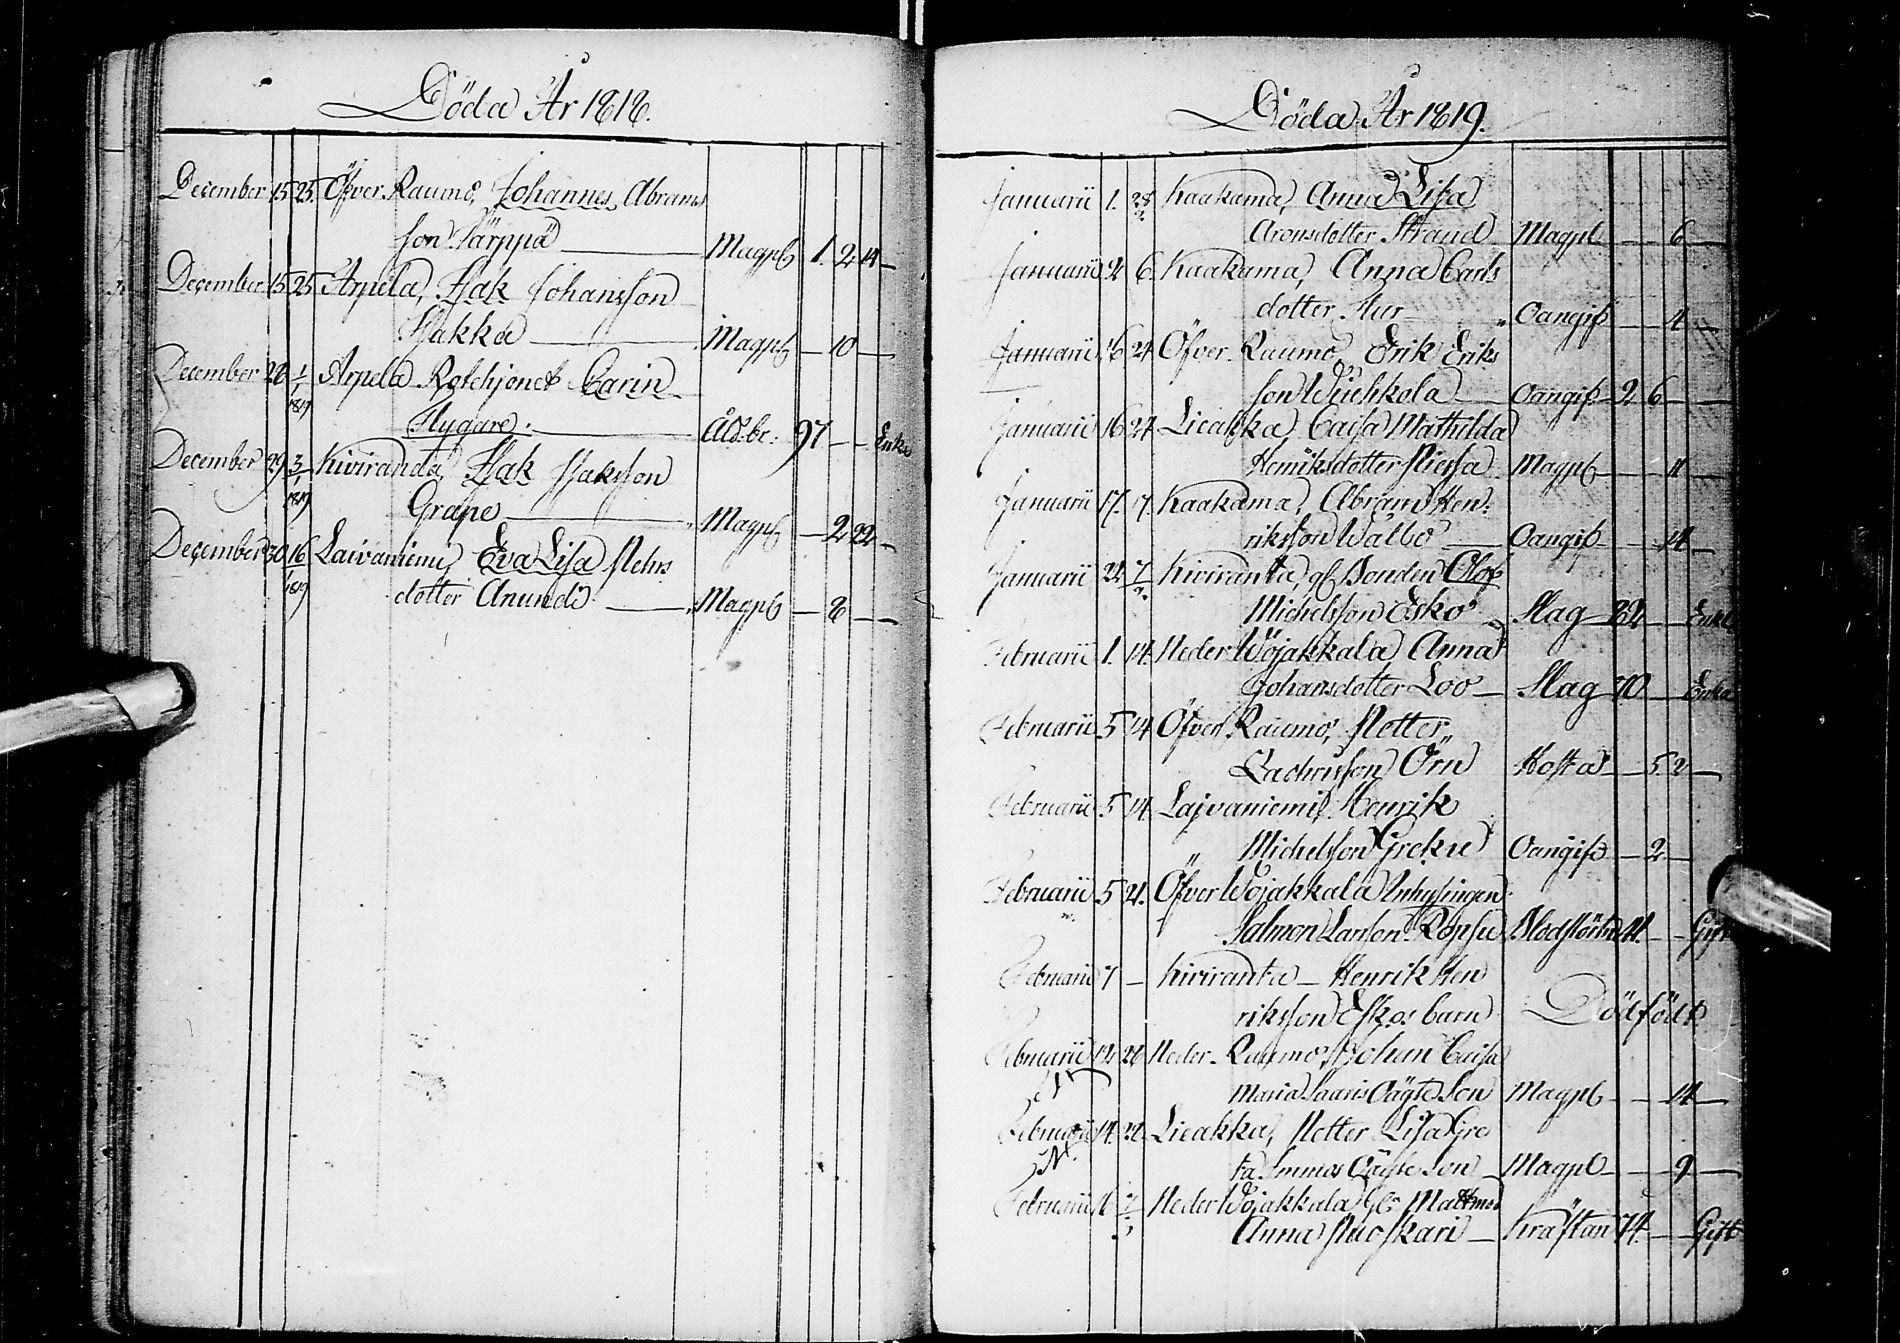 Döda År 1818.
December 15 25 Öfver Raumo, Johannes Abrams
son Särppä Magpl 1. 2 14 —
December 15 25 Arpela, Isak Johansson
Hakka Magpl — 10 —
December 28 1/1 1819 Arpela Rotehjonet Carin
Nygare. Åld.br: 97 — — Enka
December 29 3/1 1819 Kiviranta, Isak Isaksson
Grape Magpl — 2 22 —
December 30 16/1 1819 Laivaniemi, Eva Lisa Pehrs
dotter Anundi Magpl — 8 —
Döda År 1819.
Januarii 1. 28/2 Kaakama, Anna Lisa
Aronsdotter Strand Magpl — 6 —
Januarii 2 6. Kaakama, Anna Carls
dotter Oangifs — 4 —
Januarii 16 24 Öfver Raumo, Erik Eriks
son Oangifs 2 6 —
Januarii 16 27 Lieakka, Caisa Mathilda
Henriksdotter Magpl — 11 —
Januarii 17. 17. Kaakama, Abram Hen:
riksson Walbo Oangifs — 14 —
Januarii 24 7/2 Kiviranta, gl Bonden Olof
Michelsson Esko Slag 82 — Enkl
Februarii 1. 14. Neder Wojakkala Anna
Johansdotter Loo — Slag 70 — Enka
Februarii 5 14 Öfver Raumo, Petter
Zachrisson Örn Hosta — 5. 2 —
Februarii 5 14 Lajvaniemi, Henrik
Michelsson Greku Oangifs — 2 —
Februarii 5 21. Öfver Wojakkala Inhysingen
Salmon Larsson Ropsu Blodstörtn 41. — Gift
Februarii 7 — Kiviranta — Henrik Hen
riksson Eskos barn Dödfödt
Februarii 12 28 Neder Raumo, Johan Caisa
Maria Saaris Oägte Son Magpl — 14 —
Februarii 14. 28. Lieakka, Petter Lisa Gre
ta Oägte Son Magpl — 9 —
Februarii 16 7/3 Neder Wojakkala gl. Matmod
Anna Ruoskari — Kräftan 74. — Gift